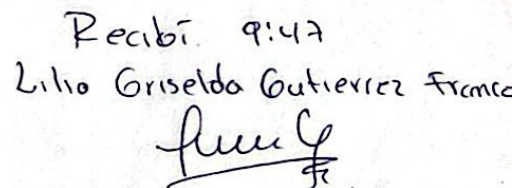 Recibí. 9:47
Lilio Griselda Gutierrez Franco